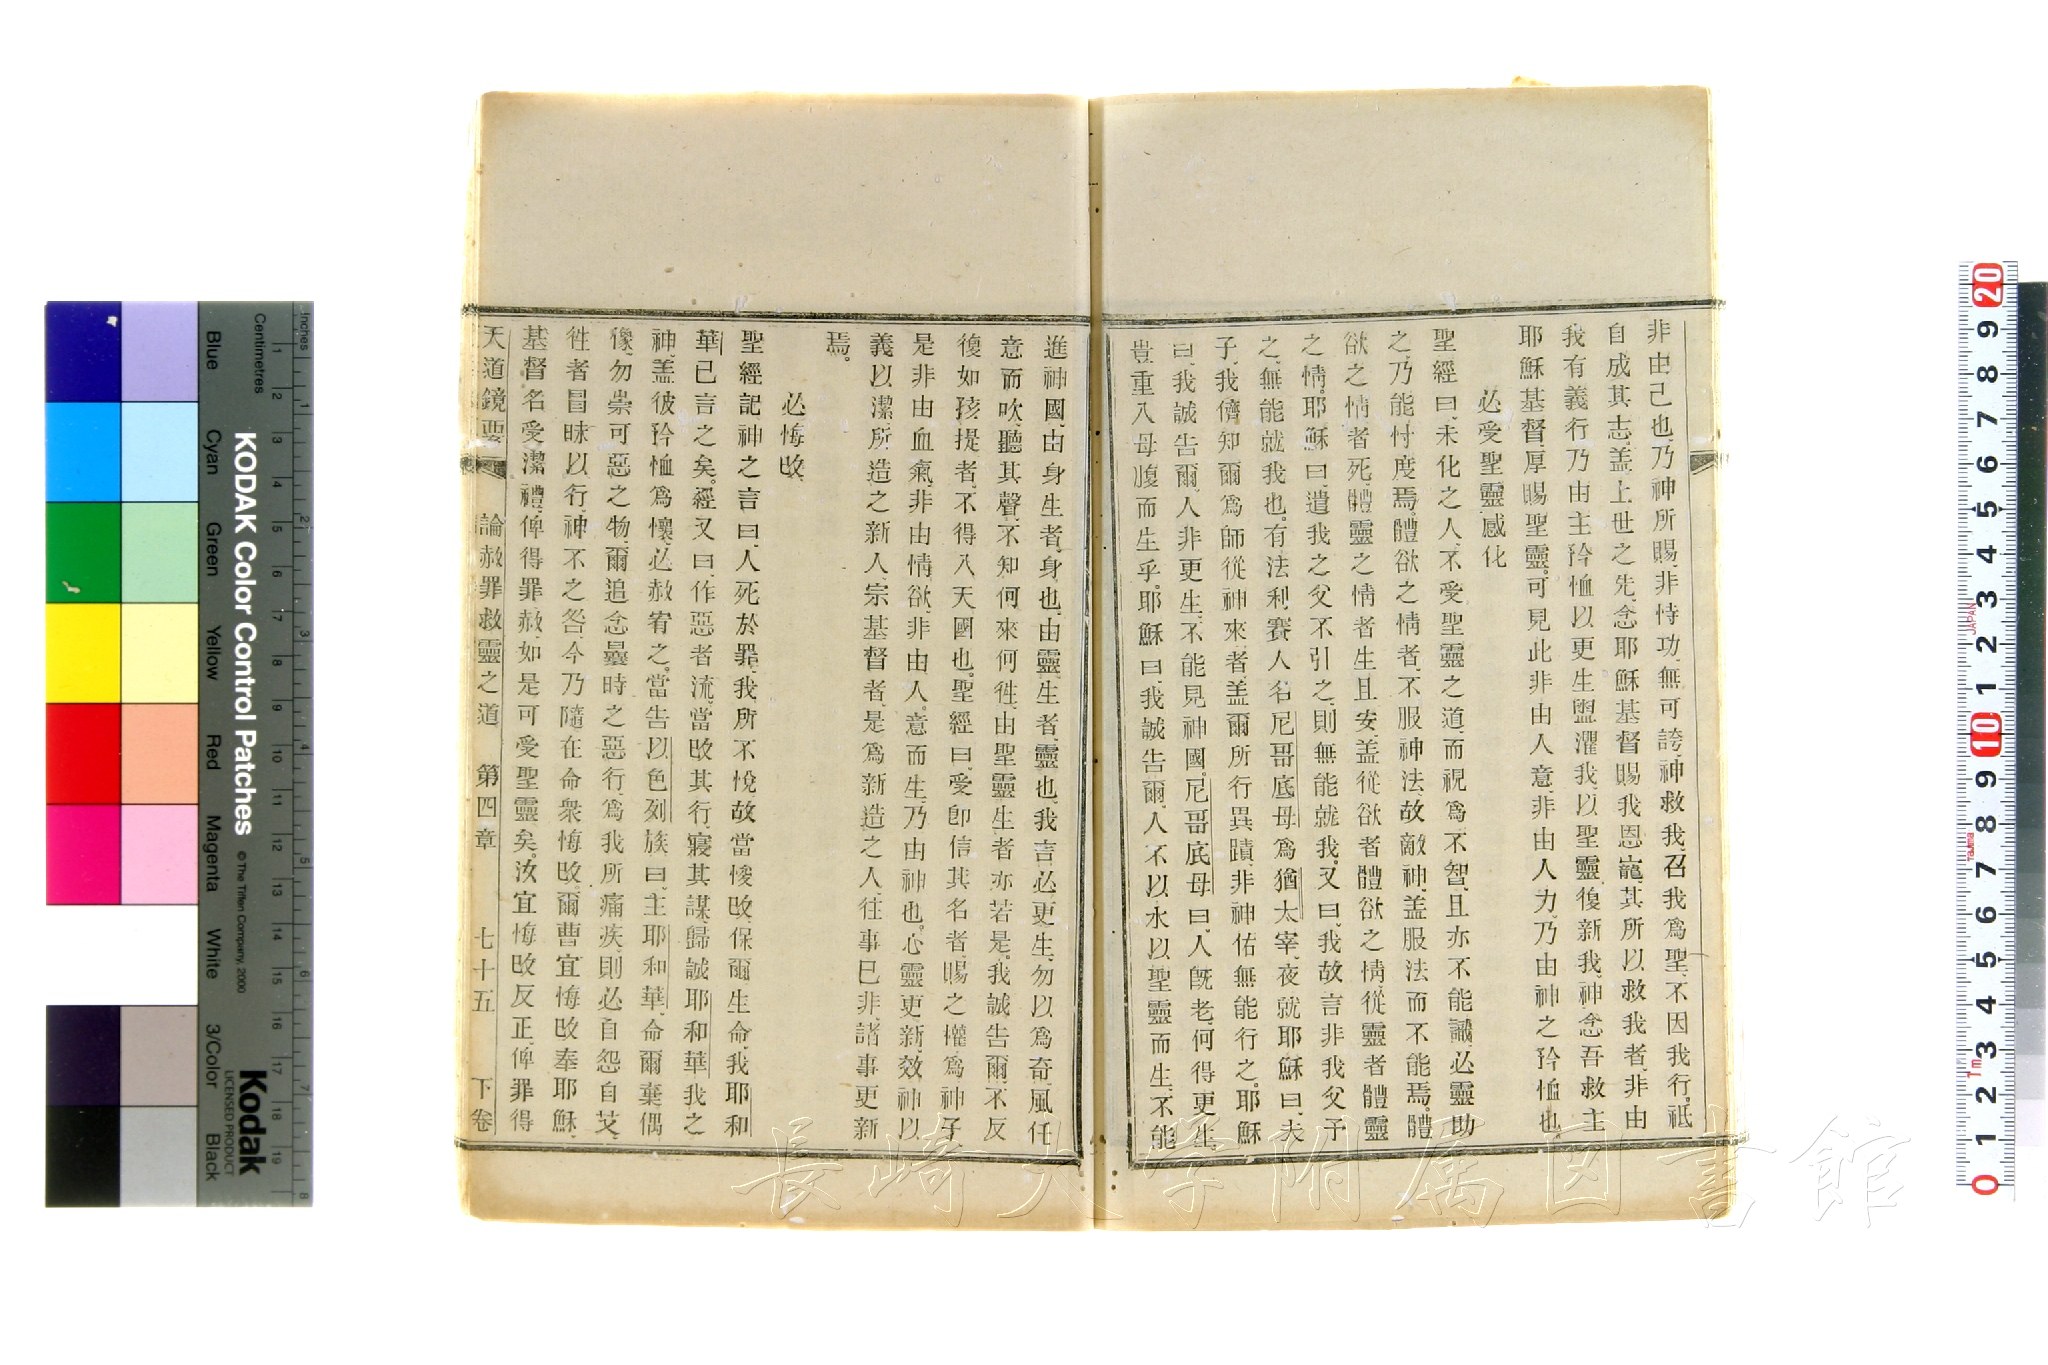 非由己也、乃神所賜、非恃功、無可誇、神救我、召我爲聖、不因我行。祗
自成其志、蓋上世之先、念耶穌基督賜我恩寵、其所以救我者、非由
我有義行、乃由主矜恤、以更生盥濯我、以聖靈復新我、神念吾救主
耶穌基督、厚賜聖靈。可見此非由人意、非由人力、乃由神之矜恤也
必受聖靈感化
聖經曰、未化之人、不受聖靈之道、而視爲不智、且亦不能識、必靈助
之、乃能忖度焉。體欲之情者、不服神法、故敵神、蓋服法而不能焉。體
欲之情者死、體靈之情者生且安、蓋從欲者體欲之情、從靈者體靈
之情。耶穌曰、遣我之父不引之、則無能就我。又曰、我故言非我父予
之、無能就我也。有法利賽人名尼哥底母、爲猶太宰、夜就耶穌曰、夫
子、我儕知爾爲師從神來者、蓋爾所行異蹟、非神佑無能行之。耶穌
曰、我誠告爾、人非更生、不能見神國。尼哥底母曰、人旣老、何得更生、
豈重入母腹而生乎。耶穌曰、我誠告爾、人不以水以聖靈而生、不能
進神國、由身生者、身也、由靈生者、靈也、我言必更生、勿以爲奇、風任
意而吹、聽其聲、不知何來何徃、由聖靈生者亦若是。我誠告爾、不反
復如孩提者、不得入天國也。聖經曰、受卽信其名者、賜之權爲神子
是非由血氣、非由情欲、非由人意而生、乃由神也。心靈更新、效神以
義以潔所造之新人、宗基督者、是爲新造之人、往事已非、諸事更新
焉。
必悔改
聖經記神之言曰、人死於罪、我所不悅、故當悛改、保爾生命、我耶和
華已言之矣。經又曰、作惡者流、當改其行、寢其謀、歸誠耶和華我之
神、蓋彼矜恤爲懷、必赦宥之。當告以色列族曰、主耶和華、命爾棄偶
像、勿祟可惡之物、爾追念曩時之惡行、爲我所痛疾、則必自怨自艾、
徃者冒昧以行、神不之咎、今乃隨在命衆悔改。爾曹宜悔改奉耶穌
基督名受潔禮、俾得罪赦、如是可受聖靈矣。汝宜悔改反正、俾罪得
天道鏡要 論赦罪救靈之道 第四章 七十五 下卷
長崎大学附属図書館
KODAK Color Control Patches
© The Tiffen Company, 2000
Kodak
LICENSED PRODUCT
Inches
Centimetres
Blue
Cyan
Green
Yellow
Red
Magenta
White
3/Color
Black